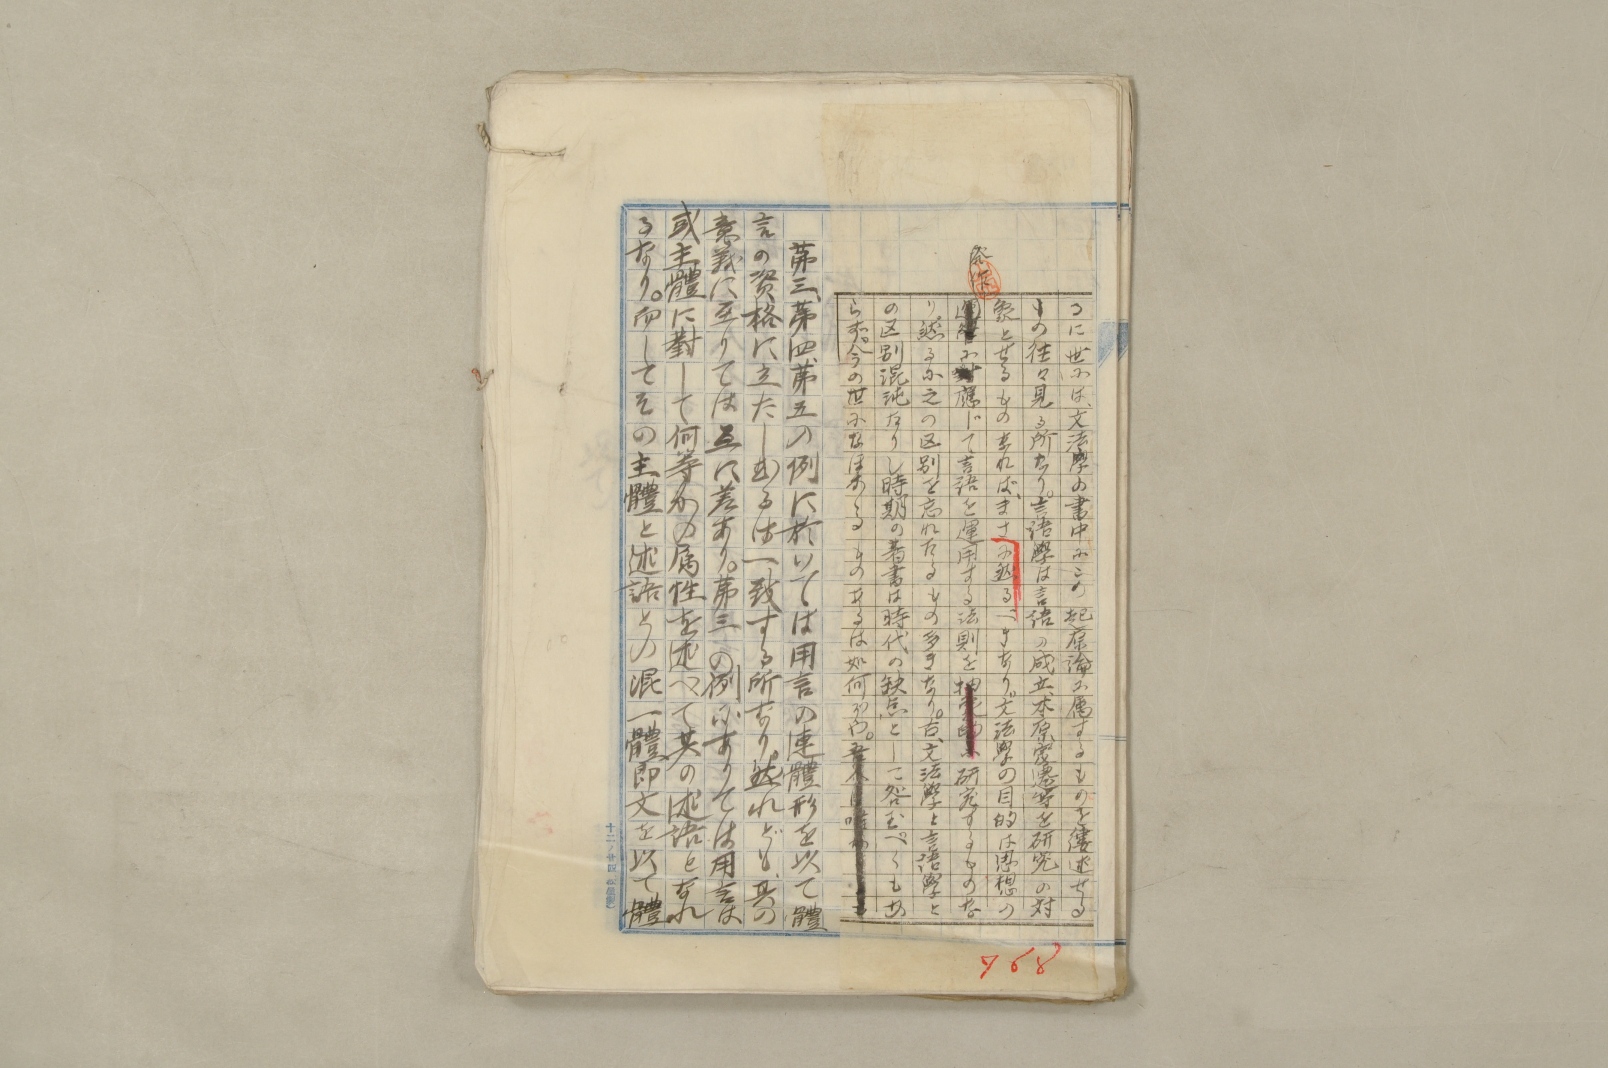 るに世には、文法學の書中にこの起原論に属するものを縷述せる
もの往々見る所なり。言語學は言語の成立、本原、変遷等を研究の対
象とせるものなれば、まさに然るべきなり。文法學の目的は思想の
に應じて言語を運用する法則を研究するものな
り然るに之の区別を忘れたるもの多きなり。古、文法學と言語學と
の区別混沌なりし時期の著書は時代の缺点として咎むべくもあ
らず。今の世になほかゝるものあるは如何ぞや。
第三、第四、第五の例に於いては用言の連體形を以て體
言の資格に立たしむるは一致する所なり。然れども、其の
意義に至りては互に差あり。第三の例にありては用言は
或主體に對して何等かの属性を述べて其の述語となれ
るなり。而してその主體と述語との混一體即文を以て體
768